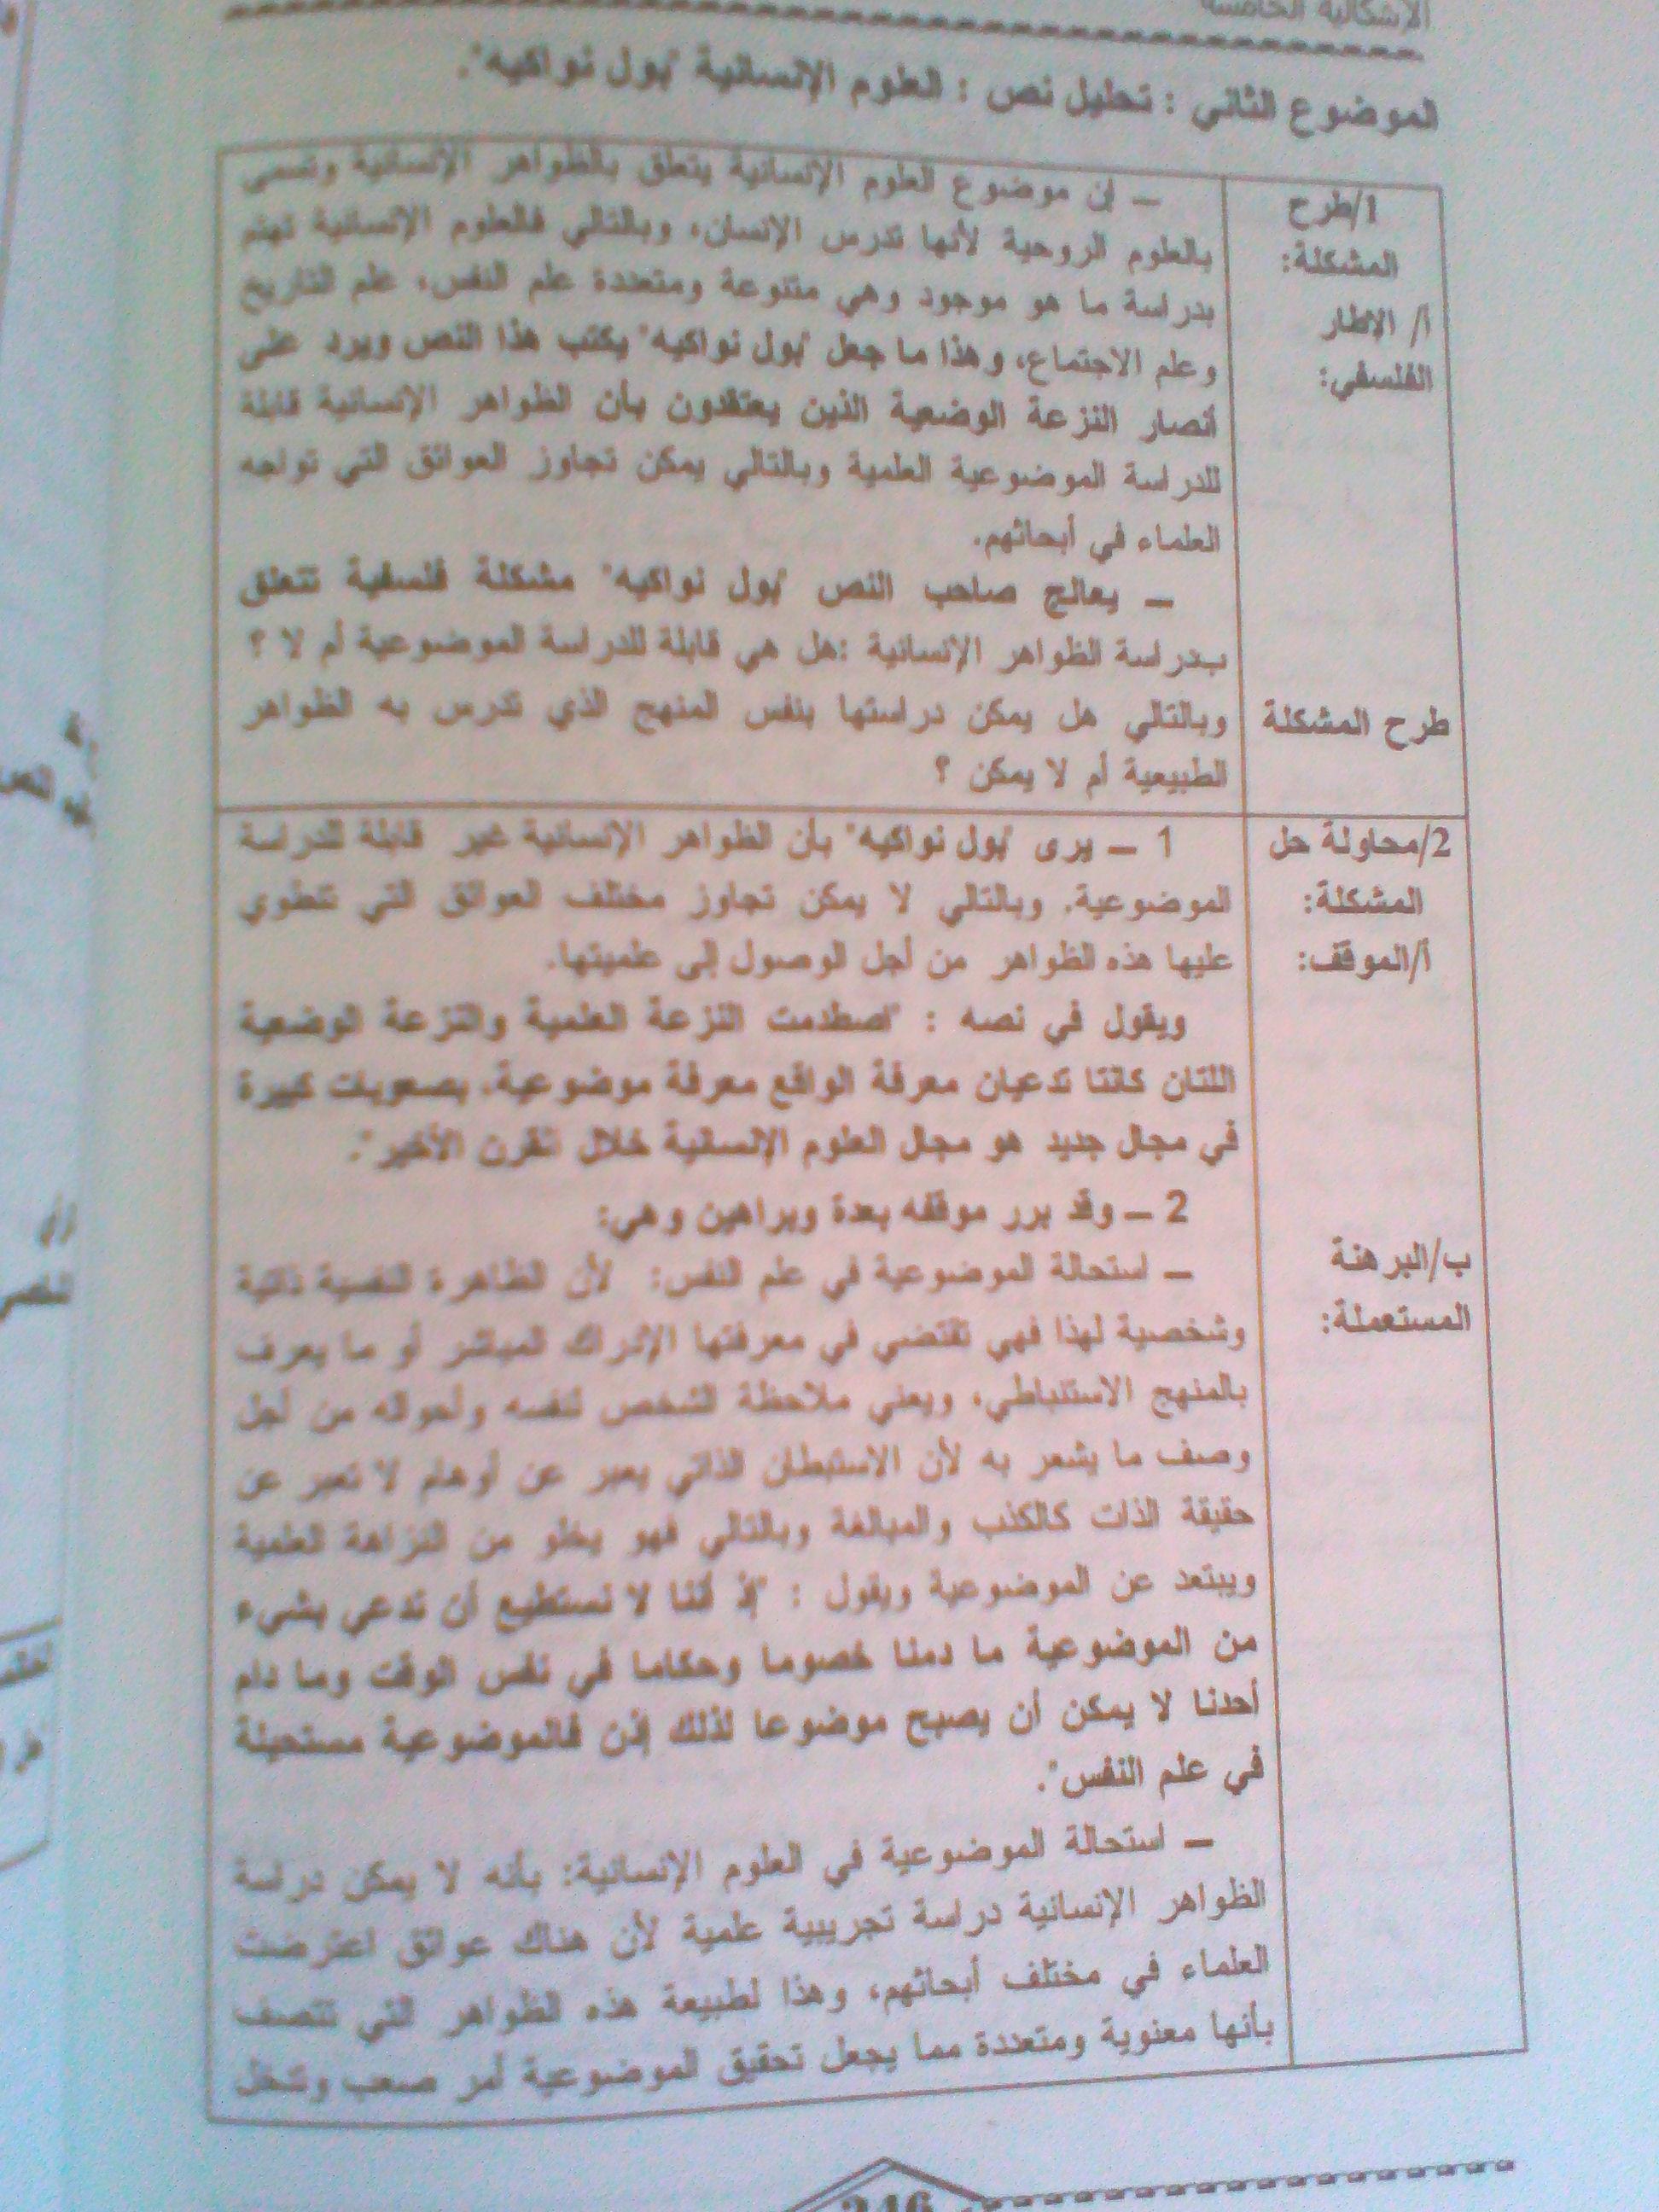 الإشكالية الخامسة
الموضوع الثاني : تحليل نص : العلوم الإنسانية "بول نواكيه".
1/طرح
المشكلة:
أ/ الإطار
الفلسفي:
– إن موضوع العلوم الإنسانية يتعلق بالظواهر الإنسانية وتسمى
بالعلوم الروحية لأنها تدرس الإنسان، وبالتالي فالعلوم الإنسانية تهتم
بدراسة ما هو موجود وهي متنوعة ومتعددة علم النفس، علم التاريخ
وعلم الاجتماع، وهذا ما جعل "بول نواكيه" يكتب هذا النص ويرد على
أنصار النزعة الوضعية الذين يعتقدون بأن الظواهر الإنسانية قابلة
للدراسة الموضوعية العلمية وبالتالي يمكن تجاوز العوائق التي تواجه
العلماء في أبحاثهم.
طرح المشكلة
– يعالج صاحب النص "بول نواكيه" مشكلة فلسفية تتعلق
بدراسة الظواهر الإنسانية :هل هي قابلة للدراسة الموضوعية أم لا ؟
وبالتالي هل يمكن دراستها بنفس المنهج الذي تدرس به الظواهر
الطبيعية أم لا يمكن ؟
2/محاولة حل
المشكلة:
أ/الموقف:
1 – يرى "بول نواكيه" بأن الظواهر الإنسانية غير قابلة للدراسة
الموضوعية. وبالتالي لا يمكن تجاوز مختلف العوائق التي تنطوي
عليها هذه الظواهر من أجل الوصول إلى علميتها.
ويقول في نصه : "اصطدمت النزعة العلمية والنزعة الوضعية
اللتان كانتا تدعيان معرفة الواقع معرفة موضوعية، بصعوبات كبيرة
في مجال جديد هو مجال العلوم الإنسانية خلال القرن الأخير".
ب/البرهنة
المستعملة:
2 – وقد برر موقفه بعدة وبراهين وهي:
– استحالة الموضوعية في علم النفس: لأن الظاهرة النفسية ذاتية
وشخصية لهذا فهي تقتضي في معرفتها الإدراك المباشر أو ما يعرف
بالمنهج الاستنباطي، ويعني ملاحظة الشخص لنفسه وأحواله من أجل
وصف ما يشعر به لأن الاستبطان الذاتي يعبر عن أوهام لا تعبر عن
حقيقة الذات كالكذب والمبالغة وبالتالي فهو يخلو من النزاهة العلمية
ويبتعد عن الموضوعية ويقول : "إذ أننا لا نستطيع أن ندعي بشيء
من الموضوعية ما دمنا خصوما وحكاما في نفس الوقت وما دام
أحدنا لا يمكن أن يصبح موضوعا لذلك إذن فالموضوعية مستحيلة
في علم النفس".
– استحالة الموضوعية في العلوم الإنسانية: بأنه لا يمكن دراسة
الظواهر الإنسانية دراسة تجريبية علمية لأن هناك عوائق اعترضت
العلماء في مختلف أبحاثهم، وهذا لطبيعة هذه الظواهر التي تتصف
بأنها معنوية ومتعددة مما يجعل تحقيق الموضوعية أمر صعب وتدخل
246